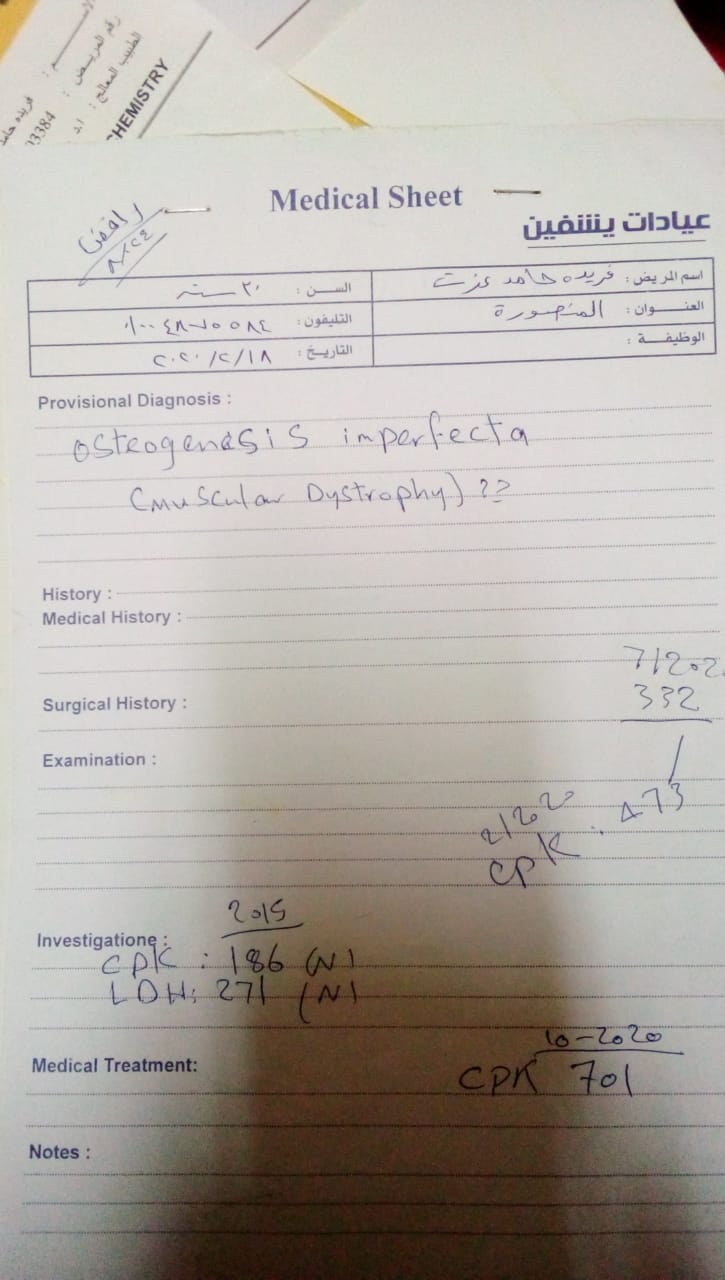 رقم المريض :
الطبيب المعالج : ا.د
فريده حامد
33384
CHEMISTRY
Medical Sheet
عيادات يشفين
اسم المريض : فريده حامد عزت
السن : ٢٠ سنه
العنوان : المنصورة
التليفون :
الوظيفة :
التاريخ : ٢٠٢٠/٢/١٨
Provisional Diagnosis :
osteogenesis imperfecta
(muscular Dystrophy) ??
History :
Medical History :
7/202
332
Surgical History :
Examination :
2/2020
CPK : 473
2015
Investigatione :
CPK : 186 (N)
LDH : 271 (N)
10-2020
Medical Treatment:
CPK 701
Notes :